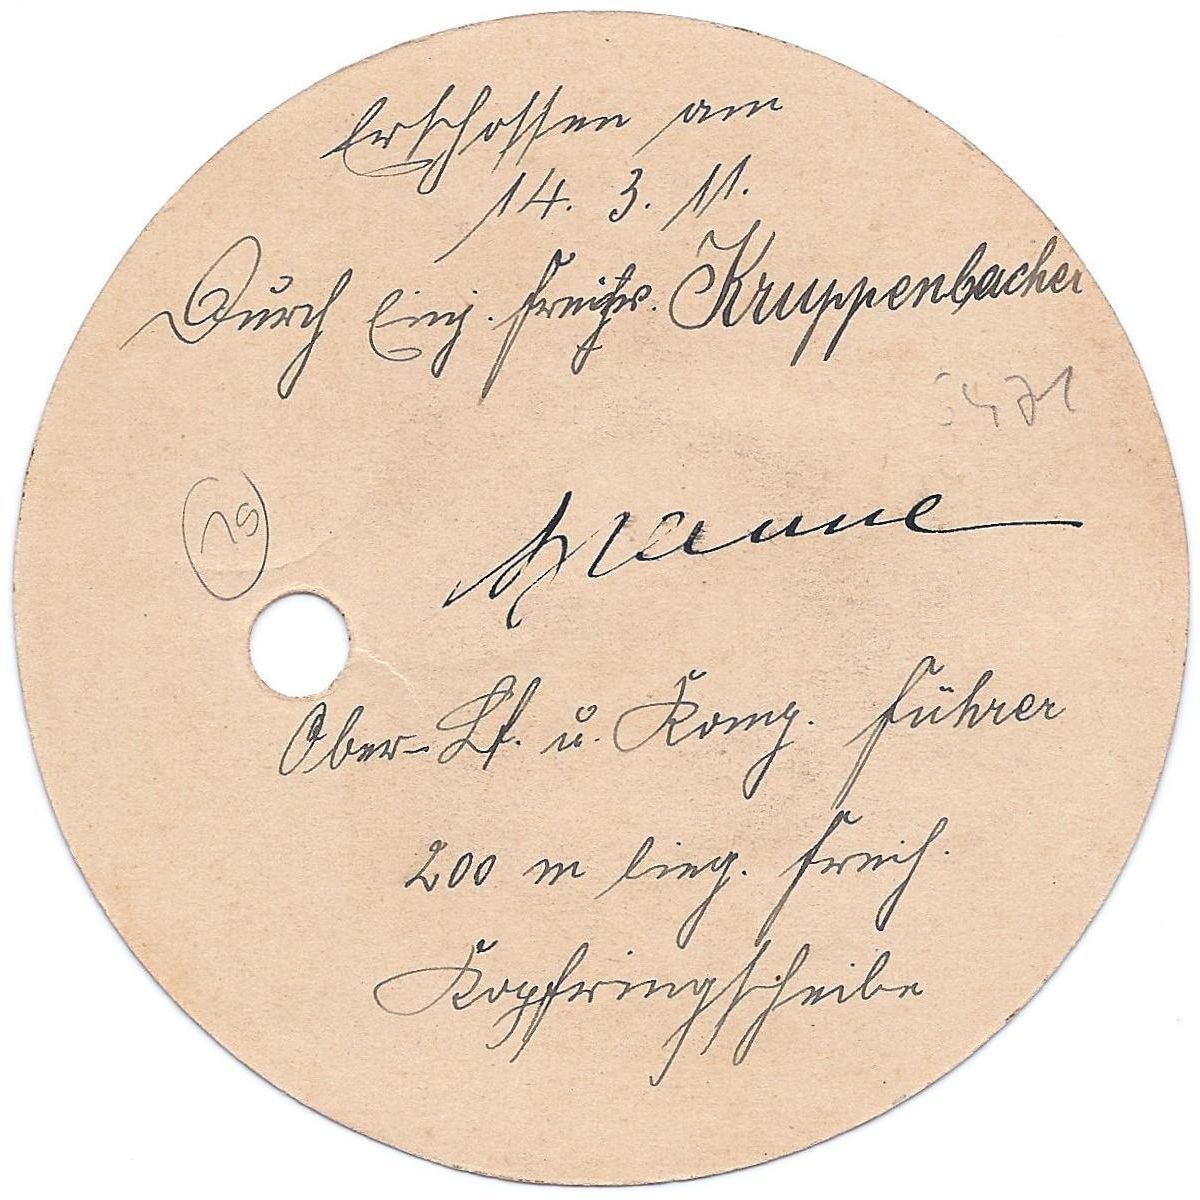 Erschossen am
14. 3. 11.
Durch Einj. Freiw. Kruppenbacher
5471
15
Ober-Lt. u. Komp. Führer
200 m lieg. freih.
Kopfringscheibe